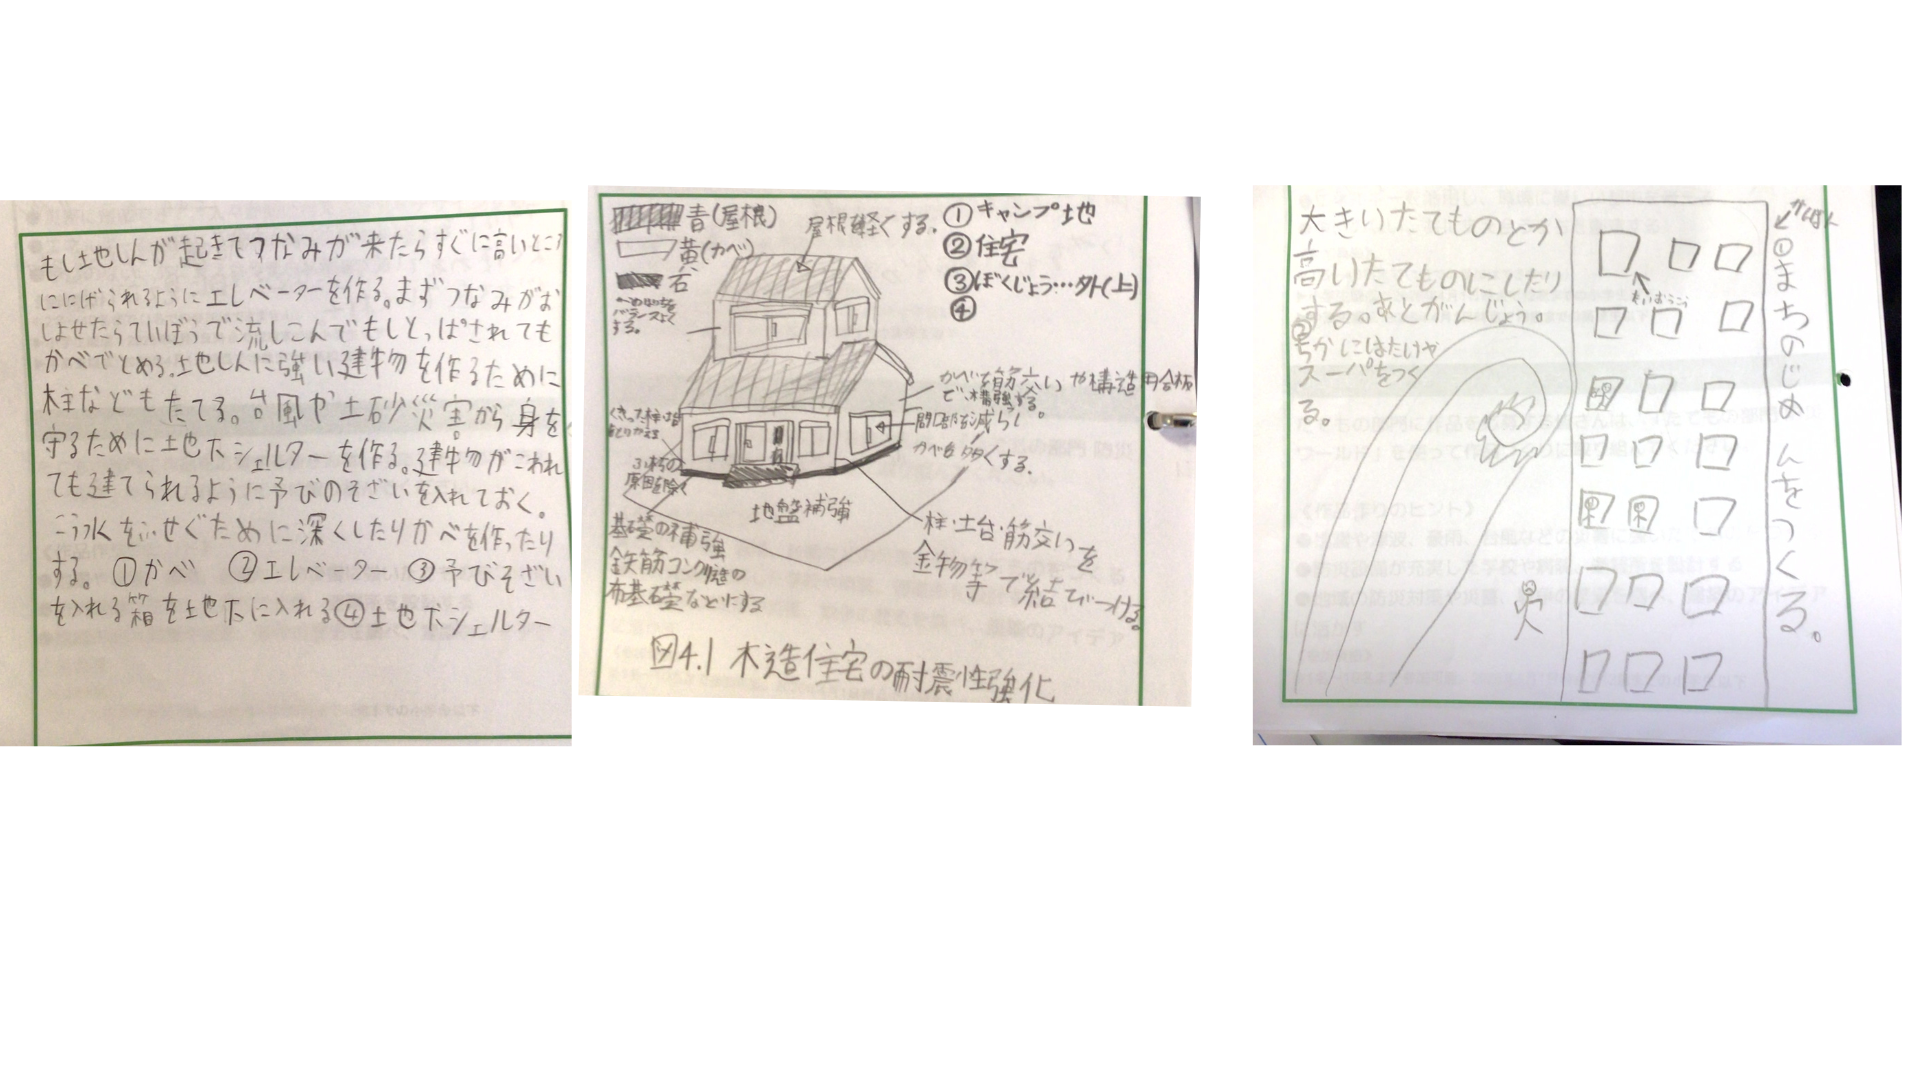 もし土地しんが起きてつなみが来たらすぐに高いところ
ににげられるようにエレベーターを作る。まずつなみがお
しよせたらていぼうで流しこんでもしとっぱされても
かべでとめる。土地しんに強い建物を作るために
柱などもたてる。台風や土砂災害から身を
守るために土地下シェルターを作る。建物がこわれ
ても建てられるように予びのそざいを入れておく。
こう水をふせぐために深くしたりかべを作ったり
する。①かべ ②エレベーター ③予びそざい
を入れる箱を土地下に入れる④土地下シェルター
青(屋根)
黄(カベ)
石
屋根を軽くする。
①キャンプ地
②住宅
③ぼくじょう…外(上)
④
バランスよく
する。
かべを筋交いや構造用合板
で補強する。
開口部を減らし
かべを多くする。
くさった柱・土台
をとりかえる
ふ朽の
原因を除く
地盤補強
基礎の補強
鉄筋コンクリート造の
布基礎などにする
柱・土台・筋交いを
金物等で結びつける。
図4.1 木造住宅の耐震性強化
大きいたてものとか
高いたてものにしたり
する。あとがんじょう。
②ちかにはたけや
スーパーをつく
る。
①まちのじめんをつくる。